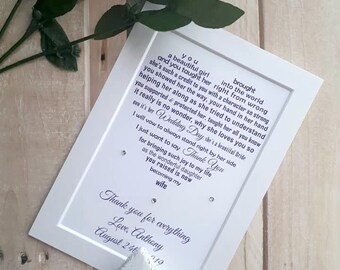 you brought
a beautiful girl into the world
and you taught her right from wrong
she's such a credit to you with a character so strong
you showed her the way, your hand in her hand
helping her along as she tried to understand
you supported & protected her, taught her all you know
it really is no wonder, why she loves you so
and it's her Wedding Day she's a beautiful bride
I will vow to always stand right by her side
I just want to say Thank You
for bringing such joy to my life
as the wonderful daughter
you raised is now
becoming my
wife
Thank you for everything
Love, Anthony
August 24th